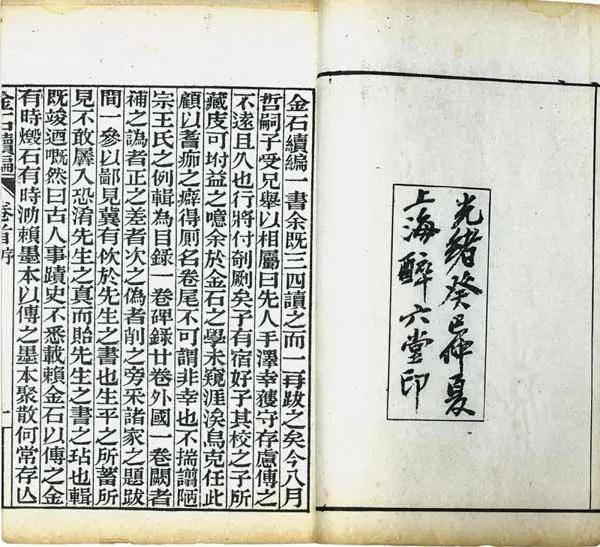 光緒癸巳仲夏
上海醉六堂印
金石續編一書余既三四讀之而一再跋之矣今八月
哲嗣子受兄舉以相屬曰先人手澤幸獲守存慮傳之
不遠且久也行將付剞劂矣子有宿好子其校之子所
藏庋可坿益之噫余於金石之學未窺涯涘烏克任此
顧以耆痂之癖得厠名卷尾不可謂非幸也不揣譾陋
宗王氏之例輯為目錄一卷碑錄廿卷外國一卷闕者
補之譌者正之差者次之偽者削之旁采諸家之題跋
間一參以鄙見冀有佽於先生之書也生平之所蓄所
見不敢羼入恐淆先生之真而貽先生之書之玷也輯
既竣迺嘅然曰古人事蹟史不悉載賴金石以傳之金
有時燬石有時泐賴墨本以傳之墨本聚散何常存亾
金石續編 卷首序 一